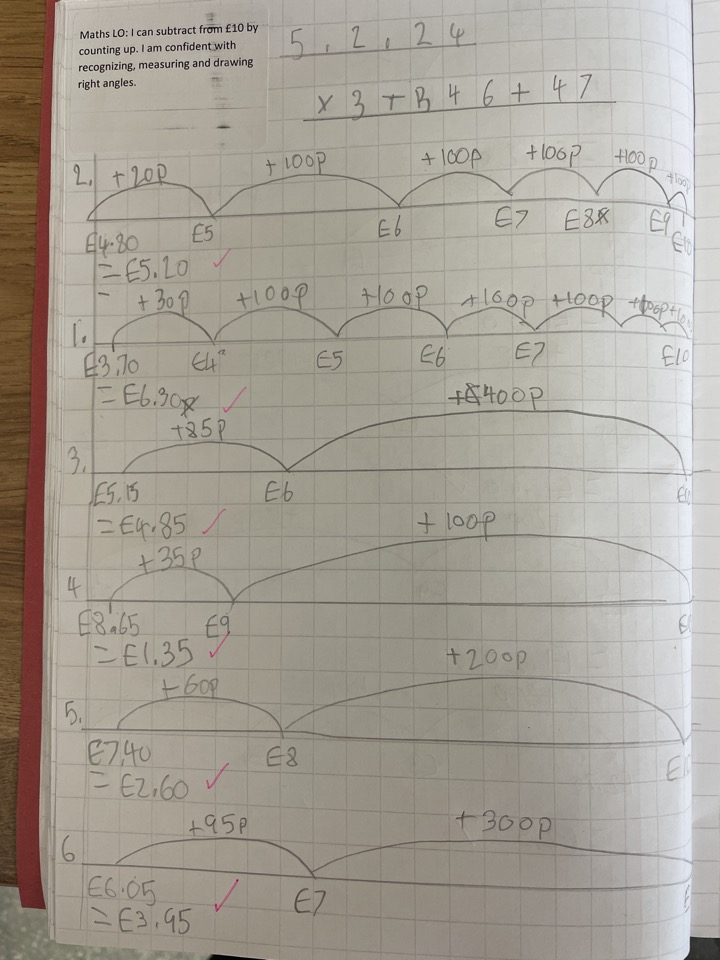 Maths LO: I can subtract from £10 by
counting up. I am confident with
recognizing, measuring and drawing
right angles.
5.2.24
x3TB46+47
2. +20p +100p +100p +100p +100p +100p
£4.80 £5 £6 £7 £8 £9 £10
= £5.20 ✓
1. +30p +100p +100p +100p +100p +100p +100p
£3.70 £4 £5 £6 £7 £10
= £6.30 ✓
3. +85p +400p
£5.15 £6
= £4.85 ✓
4 +35p +100p
£8.65 £9
= £1.35 ✓
5. +60p +200p
£7.40 £8
= £2.60 ✓
6 +95p +300p
£6.05 £7
= £3.95 ✓